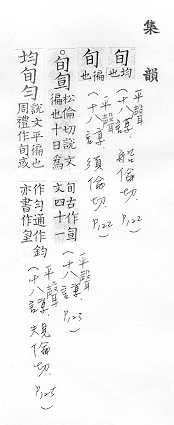 集韻
旬 均也 (平聲 十八諄 船倫切 P.122)
旬 徧也 (平聲 十八諄 須倫切 P.122)
旬 松倫切說文徧也十日為旬古作文四十一 (平聲 十八諄 P.123)
均旬勻 說文平徧也周禮作旬或作勻通作鈞亦書作 (平聲 十八諄 規倫切 P.125)